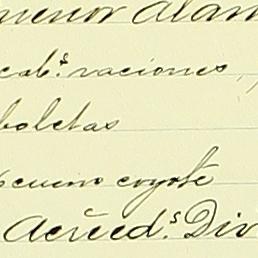 menor Alam
cab.s raciones,
boletas
cuero coyote
Acreed.s Div